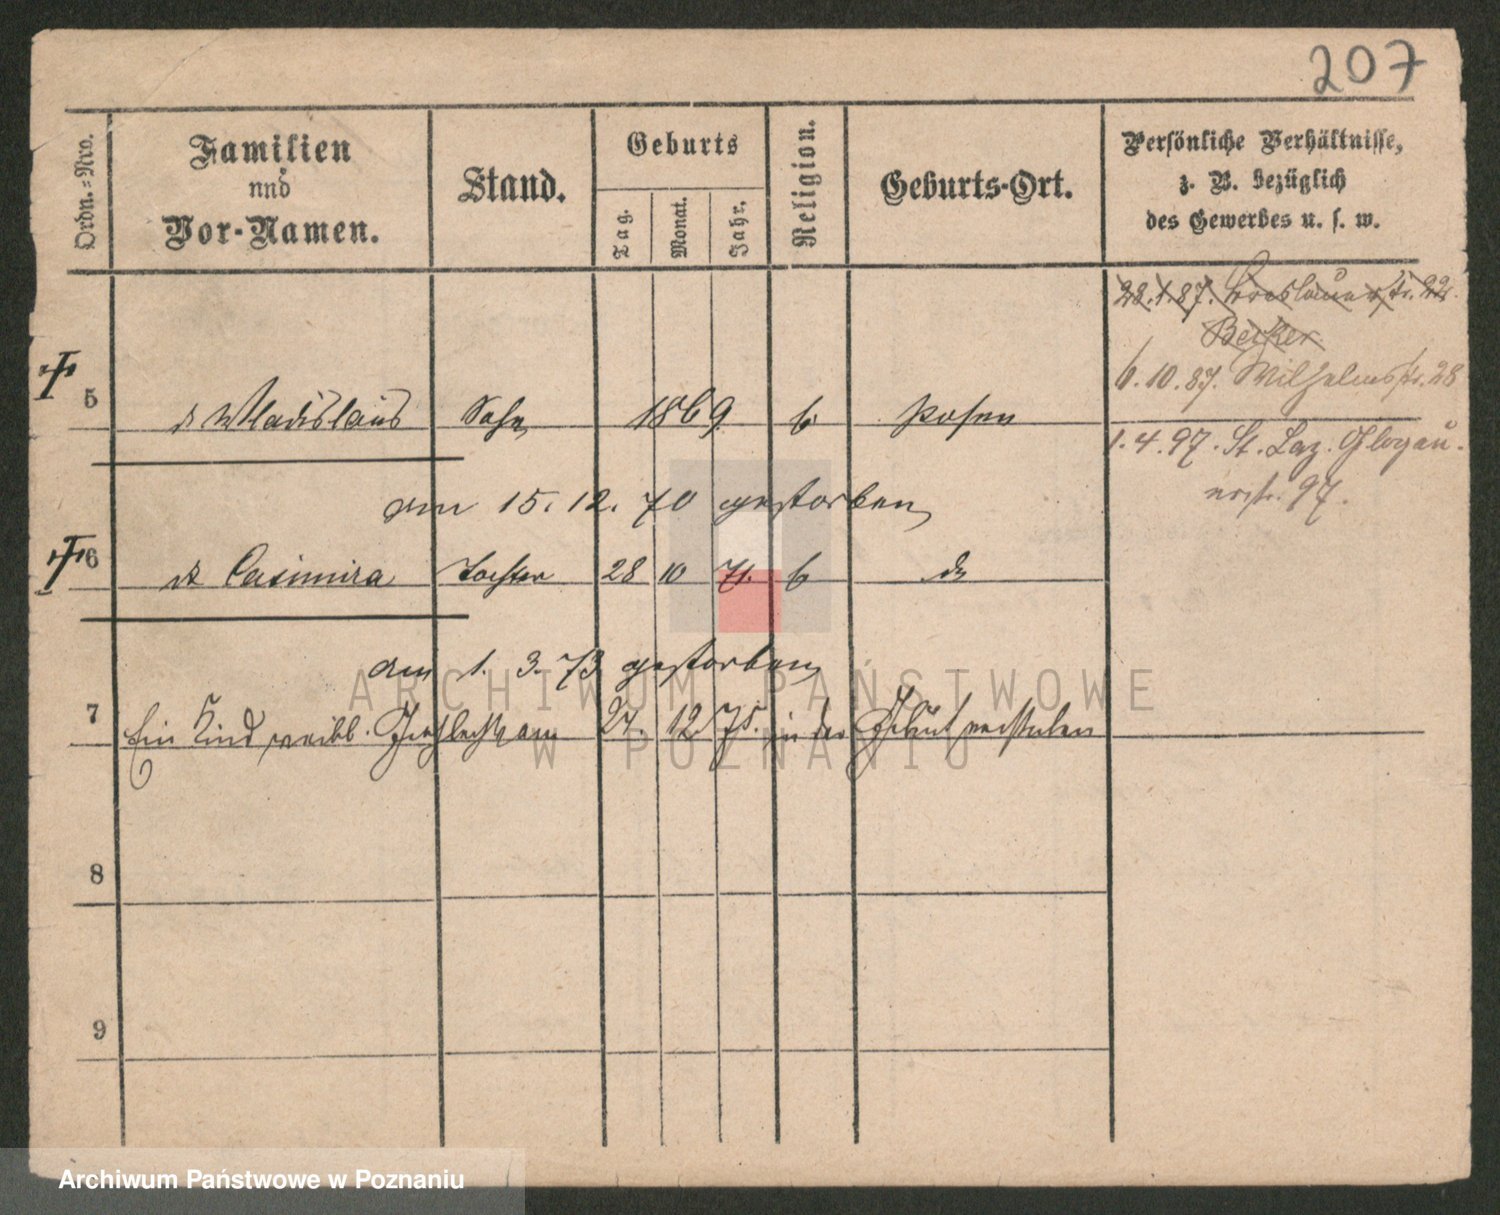 207
Ordn.=Nro.
Familien
und
Vor-Namen.
Stand.
Geburts
Tag.
Monat.
Jahr.
Religion.
Geburts-Ort.
Persönliche Verhältnisse,
z. B. bezüglich
des Gewerbes u. s. w.
28.1.87. Breslauerstr. 22.
Becker
6.10.87. Wilhelmstr. 28
5 Wladislaus Sohn 1869 k. Posen
1.4.97. St. Laz. Glogau-
erstr. 97.
am 15. 12. 70 gestorben
6 Casimira Tochter 28 10 71. k
am 1. 3. 73 gestorben
7 Ein Kind weibl. Geschlechts am 27. 12. 75. in der Geburt verstorben
8
9
ARCHIWUM PAŃSTWOWE
W POZNANIU
Archiwum Państwowe w Poznaniu